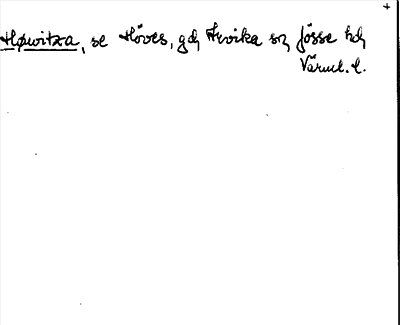 Howitza, se Höves, gd Arvika sn Jösse hd
Värml. l.